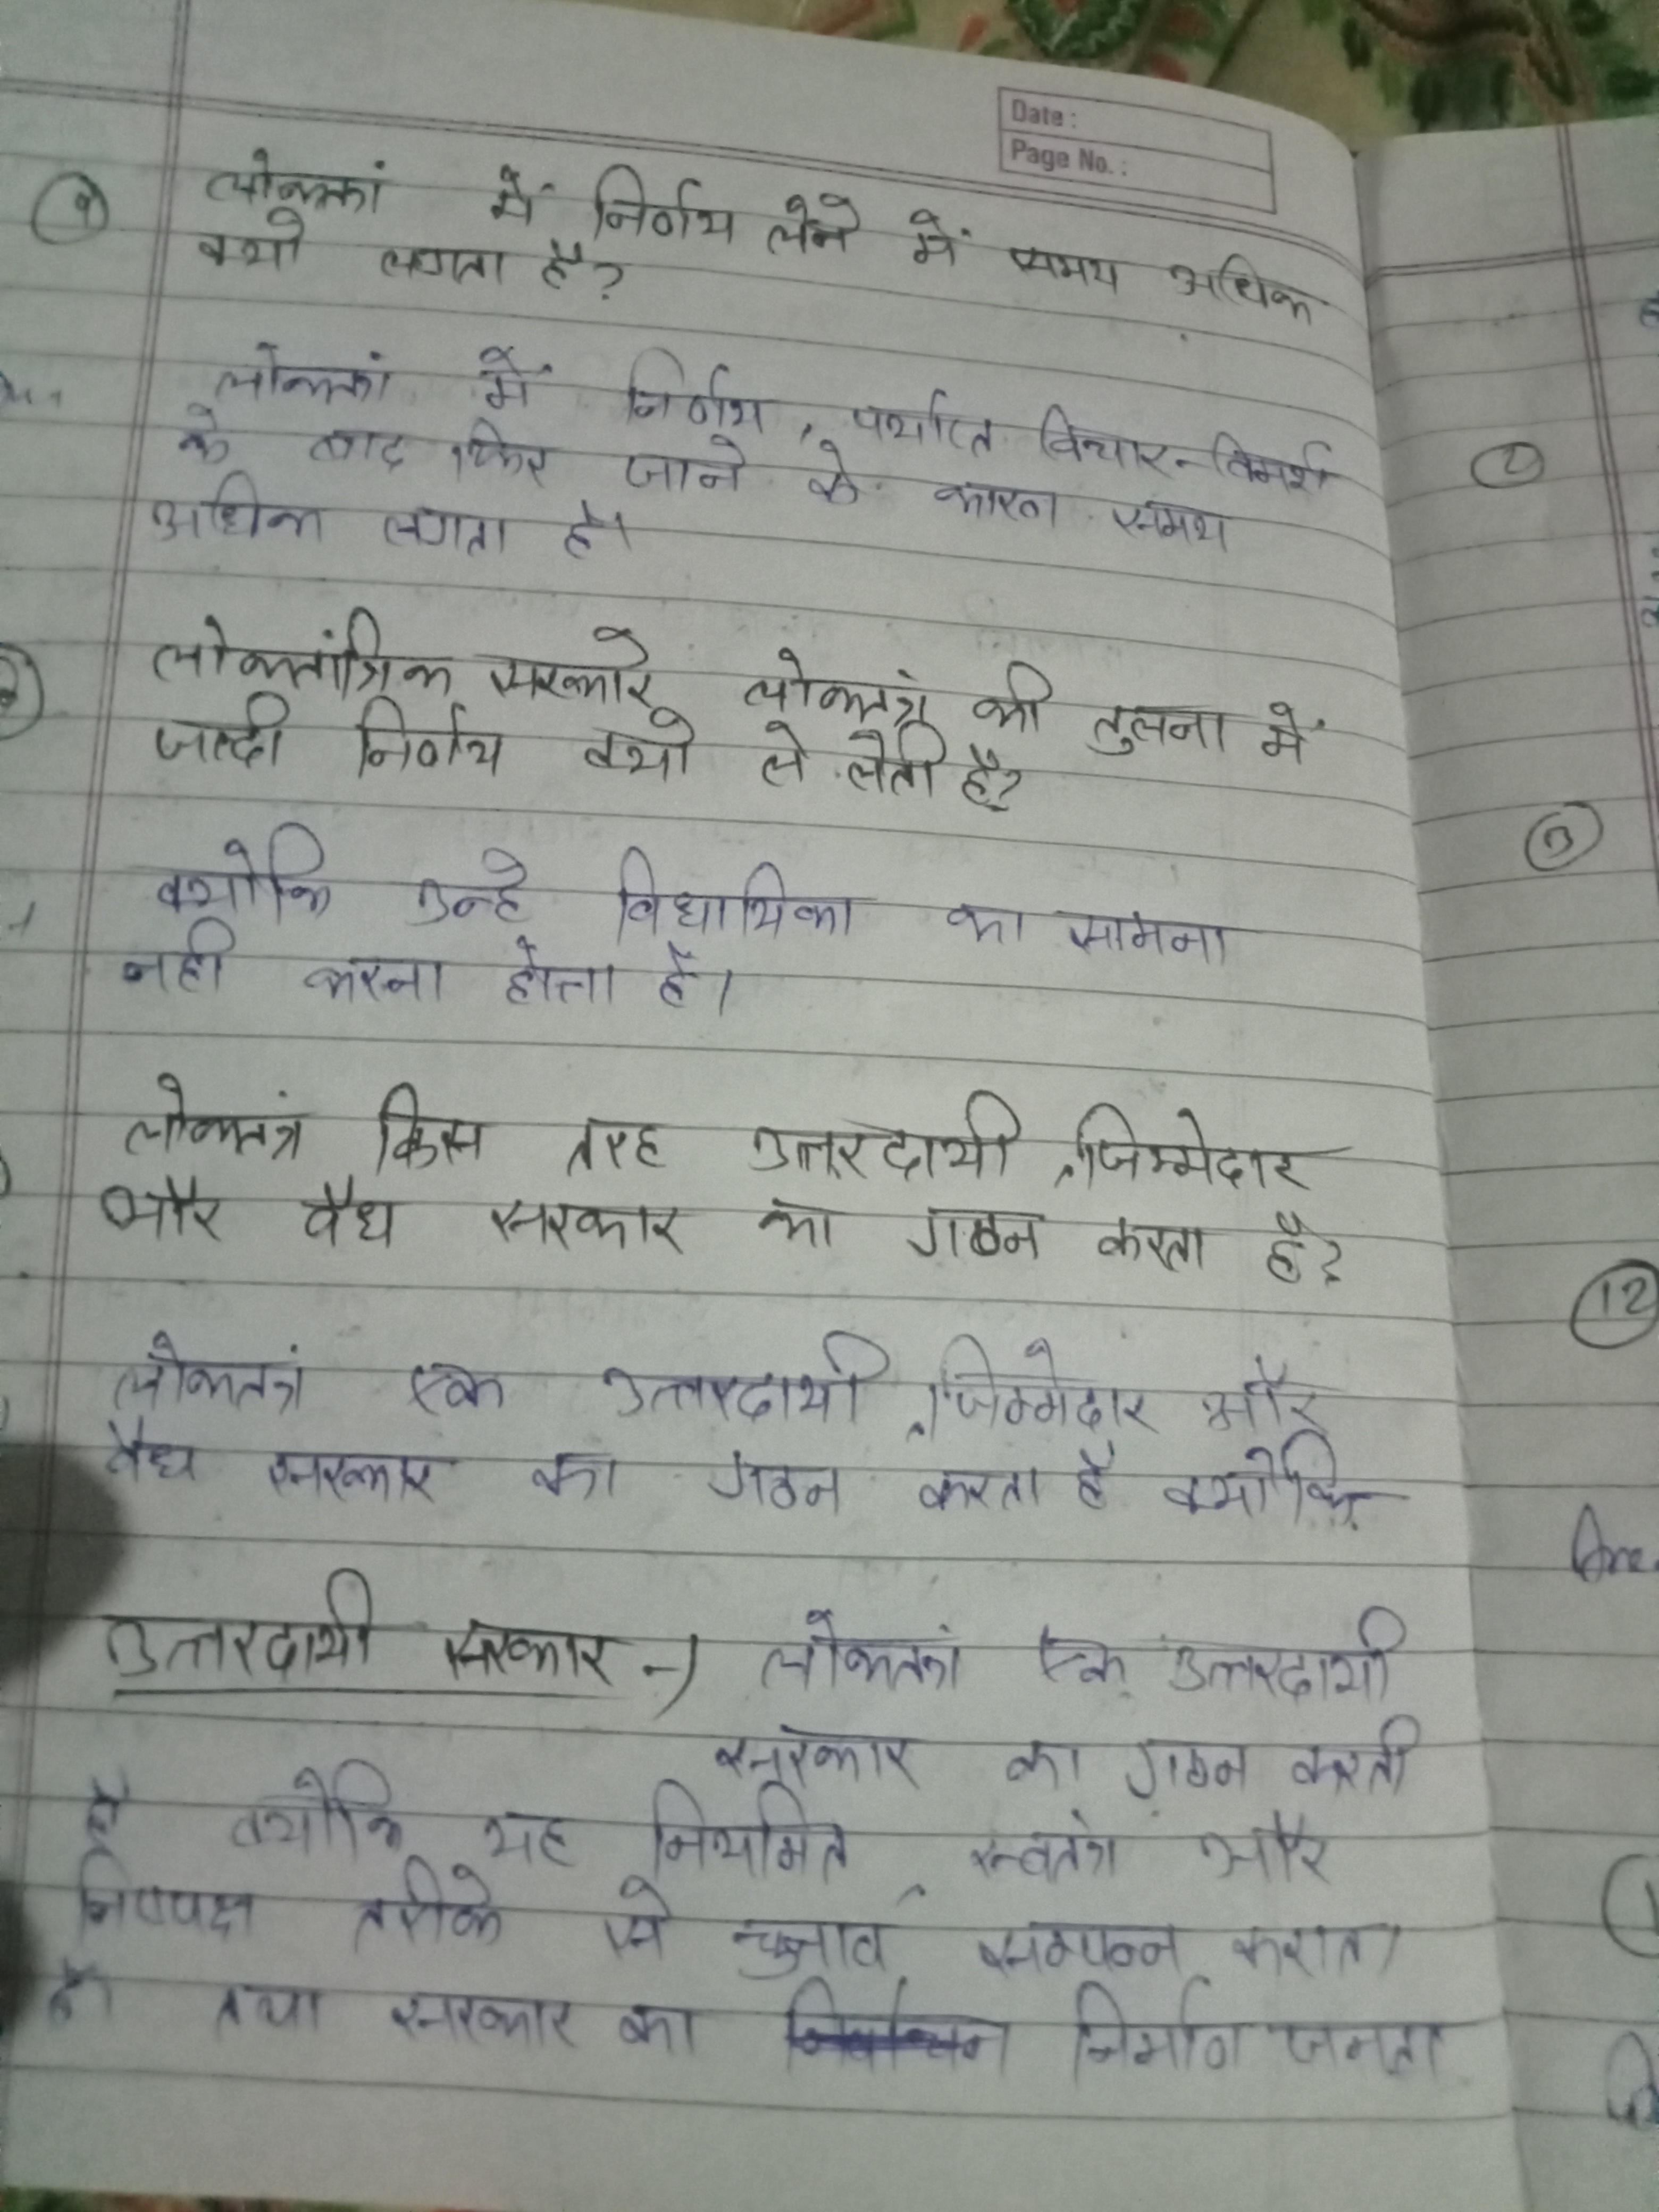 Date :
Page No. :
लोकतां में निर्णय लेने में समय अधिक
क्यो लगता है?
लोकतां में निर्णय, पर्याप्त विचार-विमर्श
के बाद किए जाने के कारण समय
अधिक लगता है।
लोकतांत्रिक सरकारे लोकतत्रं की तुलना में
जल्दी निर्णय क्यो ले लेती है?
क्योकि उन्हे विधायिका का सामना
नही करना होता है।
लोकतत्रं किस तरह उत्तरदायी, जिम्मेदार
और वैध सरकार का गठन करता है?
लोकतत्रं एक उत्तरदायी, जिम्मेदार और
वैध सरकार का गठन करता है क्योकि
उत्तरदायी सरकार -) लोकतत्रं एक उत्तरदायी
सरकार का गठन करती
है क्योकि यह नियमित, स्वतंत्र और
निष्पक्ष तरीके से चुनाव सम्पन्न कराता
है। तथा सरकार का निर्माण जनता
12